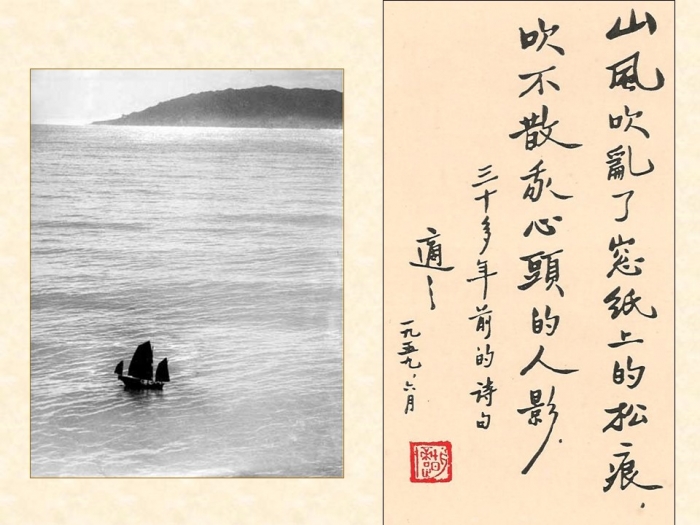 山風吹亂了窓紙上的松痕.
吹不散我心頭的人影.
三十多年前的诗句
適之
一九五九.六月